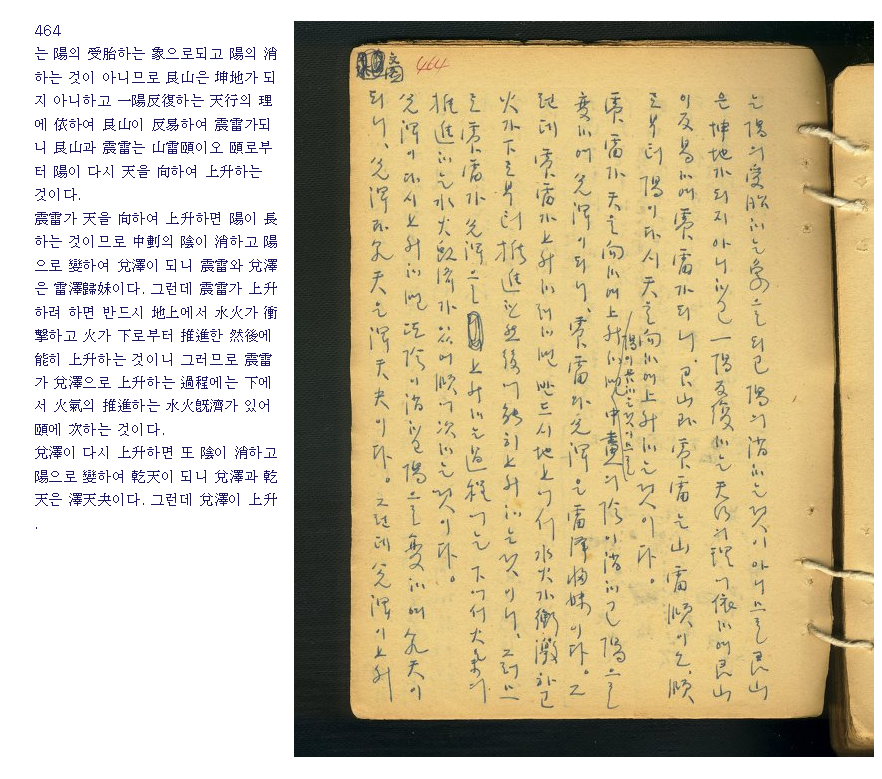 464
는 陽의 受胎하는 象으로되고 陽의 消
하는 것이 아니므로 艮山은 坤地가 되
지 아니하고 一陽反復하는 天行의 理
에 依하여 艮山이 反易하여 震雷가되
니 艮山과 震雷는 山雷頤이오 頤로부
터 陽이 다시 天을 向하여 上升하는
것이다.
震雷가 天을 向하여 上升하면 陽이 長
하는 것이므로 中劃의 陰이 消하고 陽
으로 變하여 兌澤이 되니 震雷와 兌澤
은 雷澤歸妹이다. 그런데 震雷가 上升
하려 하면 반드시 地上에서 水火가 衝
擊하고 火가 下로부터 推進한 然後에
能히 上升하는 것이니 그러므로 震雷
가 兌澤으로 上升하는 過程에는 下에
서 火氣의 推進하는 水火旣濟가 있어
頤에 次하는 것이다.
兌澤이 다시 上升하면 또 陰이 消하고
陽으로 變하여 乾天이 되니 兌澤과 乾
天은 澤天夬이다. 그런데 兌澤이 上升
.
464
는 陽의 受胎하는 象으로되고 陽의 消하는것이 아니므로 艮山
은 坤地가 되지 아니하고 一陽反復하는 天行의 理에 依하여 艮山
이 反易하여 震雷가되니 艮山과 震雷는 山雷頤이오 頤
로부터 陽이다시 天을 向하여 上升하는 것이다.
陽이 長하는 것이므로
震雷가 天을 向하여 上升하면 中畫의 陰이 消하고 陽으로
變하여 兌澤이되니, 震雷와 兌澤은 雷澤歸妹이다. 그
런데 震雷가 上升하려하면 반드시 地上에서 水火가 衝激하고
火가 下로부터 推進한 然後에 能히 上升하는 것이니, 그러므
로 震雷가 兌澤으로 上升하는 過程에는 下에서 火氣의
推進하는 水火旣濟가 있어 頤에 次하는 것이다.
兌澤이 다시 上升하면 또 陰이 消하고 陽으로 變하여 乾天이
되니, 兌澤과 乾天은 澤天夬이다. 그런데 兌澤이 上升